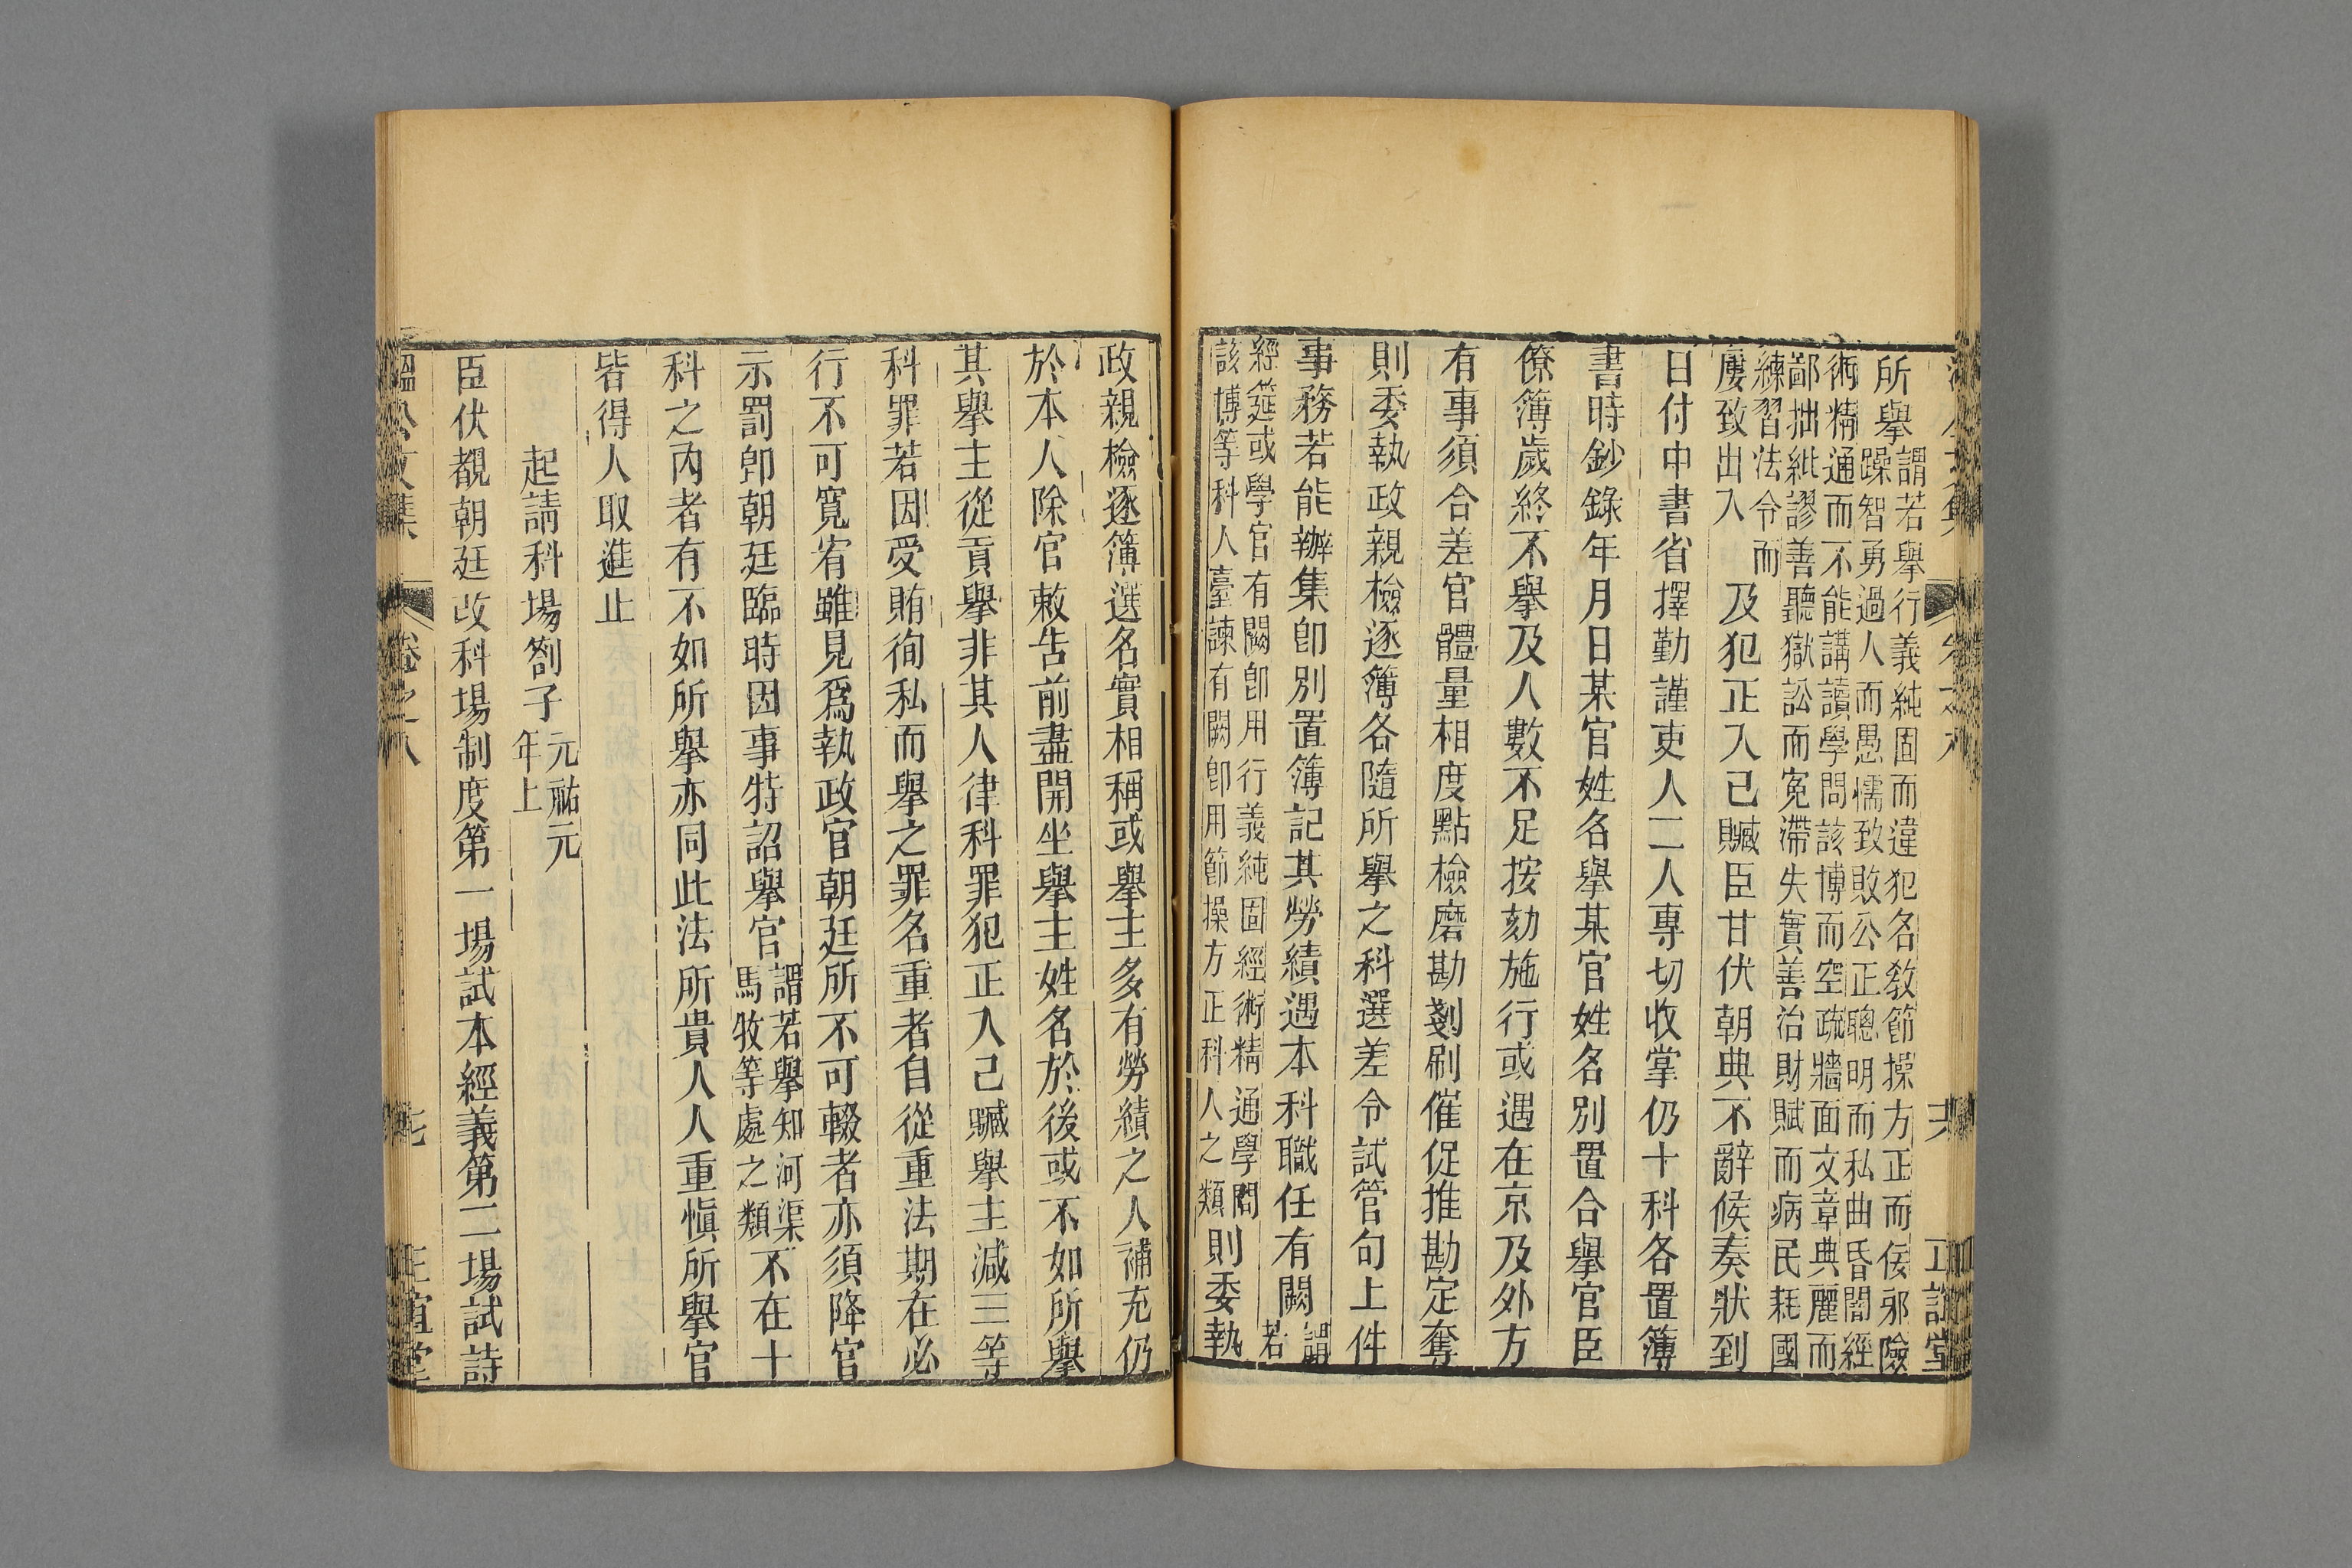 所舉謂若舉行義純固而違犯各教節操方正而佞邪險
躁智勇過人而愚懦致敗公正聰明而私曲昏闇經
術精通而不能講讀學問該博而空疏牆面文章典麗而
鄙拙紕謬善聽獄訟而冤滯失實善治財賦而病民耗國
練習法令而
屢致出入及犯正入己贓臣甘伏朝典不辭候奏狀到
日付中書省擇勤謹吏人二人專切收掌仍十科各置簿
書時鈔錄年月日某官姓名舉某官姓名別置合舉官臣
僚簿歲終不舉及人數不足按劾施行或遇在京及外方
有事須合差官體量相度點檢磨勘剗刷催促推勘定奪
則委執政親檢逐簿各隨所舉之科選差令試管句上件
事務若能辦集卽別置簿記其勞績遇本科職任有闕謂
若
經筵或學官有闕卽用行義純固經術精通學問
該博等科人臺諫有闕卽用節操方正科人之類則委執
政親檢逐簿選名實相稱或舉主多有勞績之人補充仍
於本人除官敕告前盡開坐舉主姓名於後或不如所舉
其舉主從貢舉非其人律科罪犯正入己贓舉主減三等
科罪若因受賄徇私而舉之罪名重者自從重法期在必
行不可寬宥雖見爲執政官朝廷所不可輟者亦須降官
示罰卽朝廷臨時因事特詔舉官謂若舉知河渠
馬牧等處之類不在十
科之內者有不如所舉亦同此法所貴人人重愼所舉官
皆得人取進止
起請科場劄子元祐元
年上
臣伏覩朝廷改科場制度第一場試本經義第二場試詩
溫公文集
卷之八
七
正誼堂